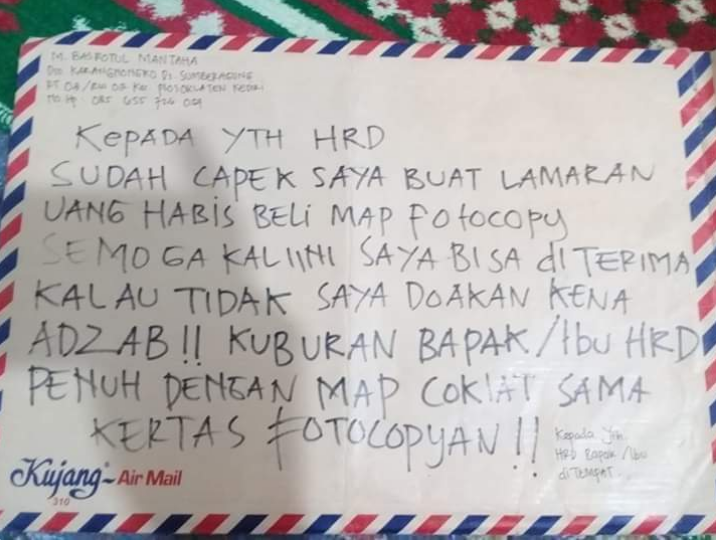 M. BASROTUL MANTAHA
Dsn KARANGNONGKO Ds. SUMBERAGUNG
RT 04/RW 02 Kec PLOSOKLATEN KEDIRI
No Hp : 085 655
KEPADA YTH HRD
SUDAH CAPEK SAYA BUAT LAMARAN
UANG HABIS BELI MAP FOTOCOPY
SEMOGA KALIINI SAYA BISA diTERIMA
KALAU TIDAK SAYA DOAKAN KENA
ADZAB!! KUBURAN BAPAK/Ibu HRD
PENUH DENGAN MAP COKlAT SAMA
KERTAS FOTOCOPYAN!!
Kepada Yth.
HRD Bapak/Ibu
diTEMPAT.
Kujang Air Mail
310